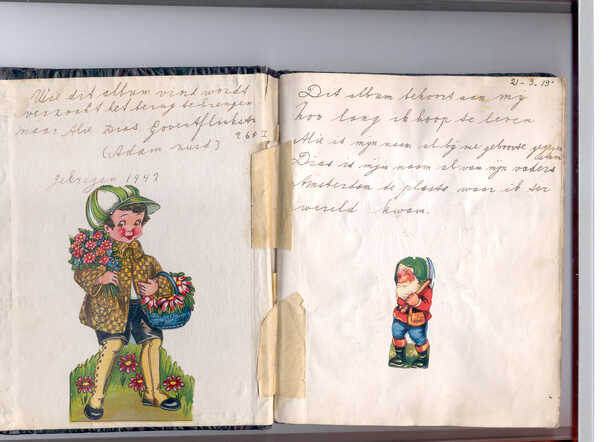 Wie dit album vind wordt
verzocht het terug te brengen
naar Alie Dias Govert Flinkstr
260 I
(Adam zuid)
gekregen 1942
21-3-19
Dit album behoort aan my
hoo lang ik hoop te leven
Alie is mijn naam al bij me geboorte gegeven
Dias is mijn naam al van mijn vaders
Amsterdam te plaats waar ik ter
wereld kwam.